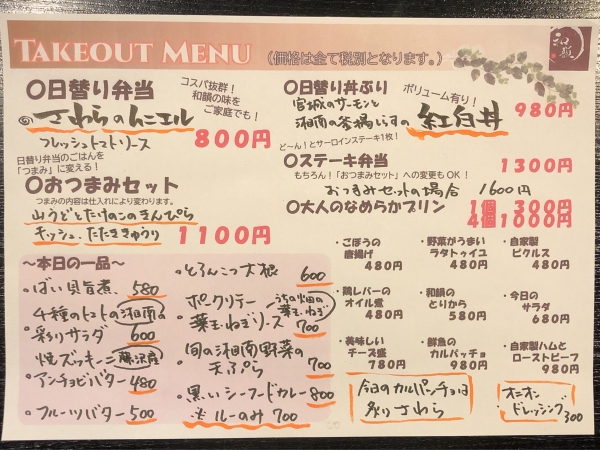 TAKEOUT MENU
(価格は全て税別となります。)
和韻
〇日替り弁当
コスパ抜群!
和韻の味を
ご家庭でも!
◎さわらのムニエル
フレッシュトマトソース
800円
日替り弁当のごはんを
「つまみ」に変える!
〇おつまみセット
つまみの内容は仕入れにより変わります。
山うどとたけのこのきんぴら
キッシュ、たたききゅうり
1100円
〇日替り丼ぶり
ボリューム有り!
宮城のサーモンと
湘南の釜揚しらすの
紅白丼
980円
ど〜ん!とサーロインステーキ1枚!
〇ステーキ弁当
1300円
もちろん!「おつまみセット」への変更もOK!
おつまみセットの場合 1600円
〇大人のなめらかプリン
1個 300円
4個1000円
〜本日の一品〜
・ばい貝旨煮 580
・4種のトマトの湘南の
彩りサラダ 600
・焼ズッキーニ 藤沢産
アンチョビバター 480
・フルーツバター 500
・とろんこつ大根 600
・ポークソテー うちの畑の葉玉ねぎ
葉玉ねぎソース 700
・旬の湘南野菜の
天ぷら 700
・黒いシーフードカレー 800
※ルーのみ 700
・ごぼうの
唐揚げ
480円
・野菜がうまい
ラタトゥイユ
480円
・自家製
ピクルス
480円
・鶏レバーの
オイル煮
480円
・和韻の
とりから
580円
・今日の
サラダ
680円
・美味しい
チーズ盛
780円
・鮮魚の
カルパッチョ
980円
・自家製ハムと
ローストビーフ
980円
今日のカルパッチョは
炙りさわら
オニオン
ドレッシング 300